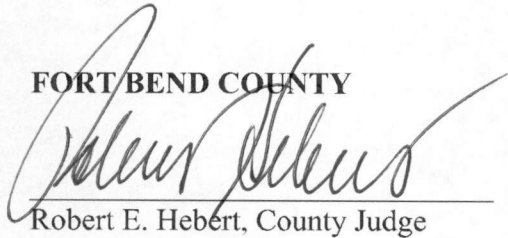 FORT BEND COUNTY
Robert Hebert
Robert E. Hebert, County Judge